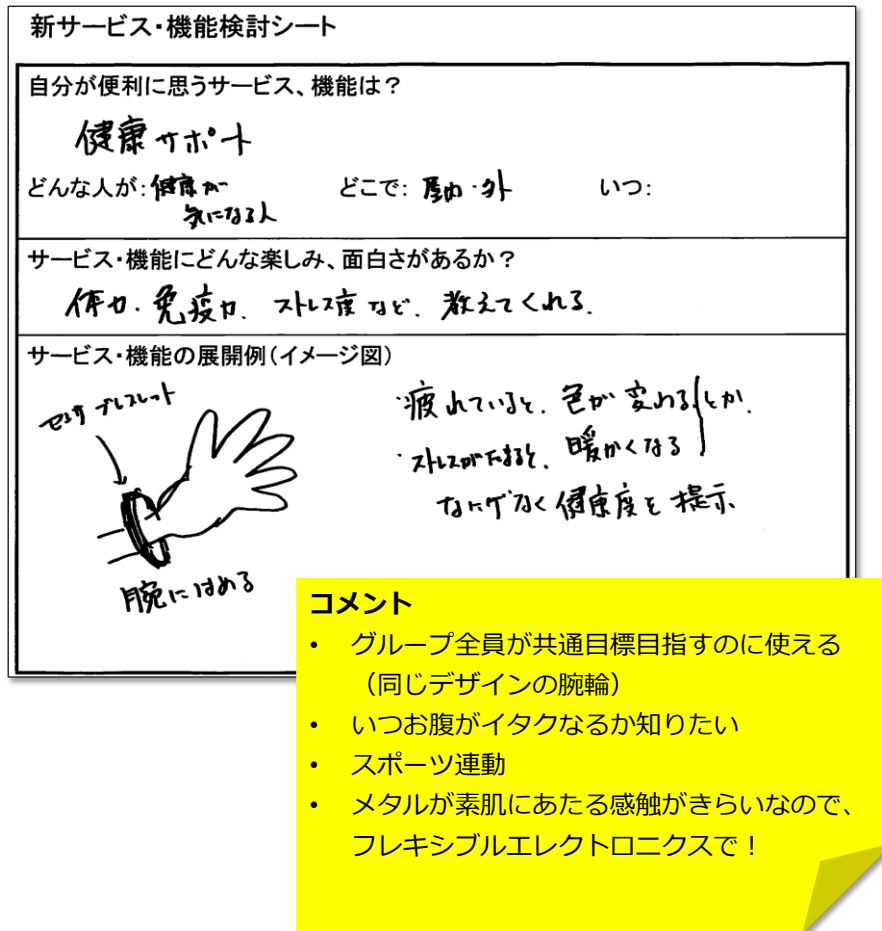 新サービス・機能検討シート
自分が便利に思うサービス、機能は？
健康サポート
どんな人が：健康が
気になる人
どこで：屋内・外
いつ：
サービス・機能にどんな楽しみ、面白さがあるか？
体力・免疫力、ストレス度など、教えてくれる。
サービス・機能の展開例（イメージ図）
センサブレスレット
腕にはめる
・疲れていると、色が変わる とか、
・ストレスがたまると、暖かくなる
なにげなく健康度を提示、
コメント
• グループ全員が共通目標目指すのに使える
（同じデザインの腕輪）
• いつお腹がイタクなるか知りたい
• スポーツ連動
• メタルが素肌にあたる感触がきらいなので、
フレキシブルエレクトロニクスで！